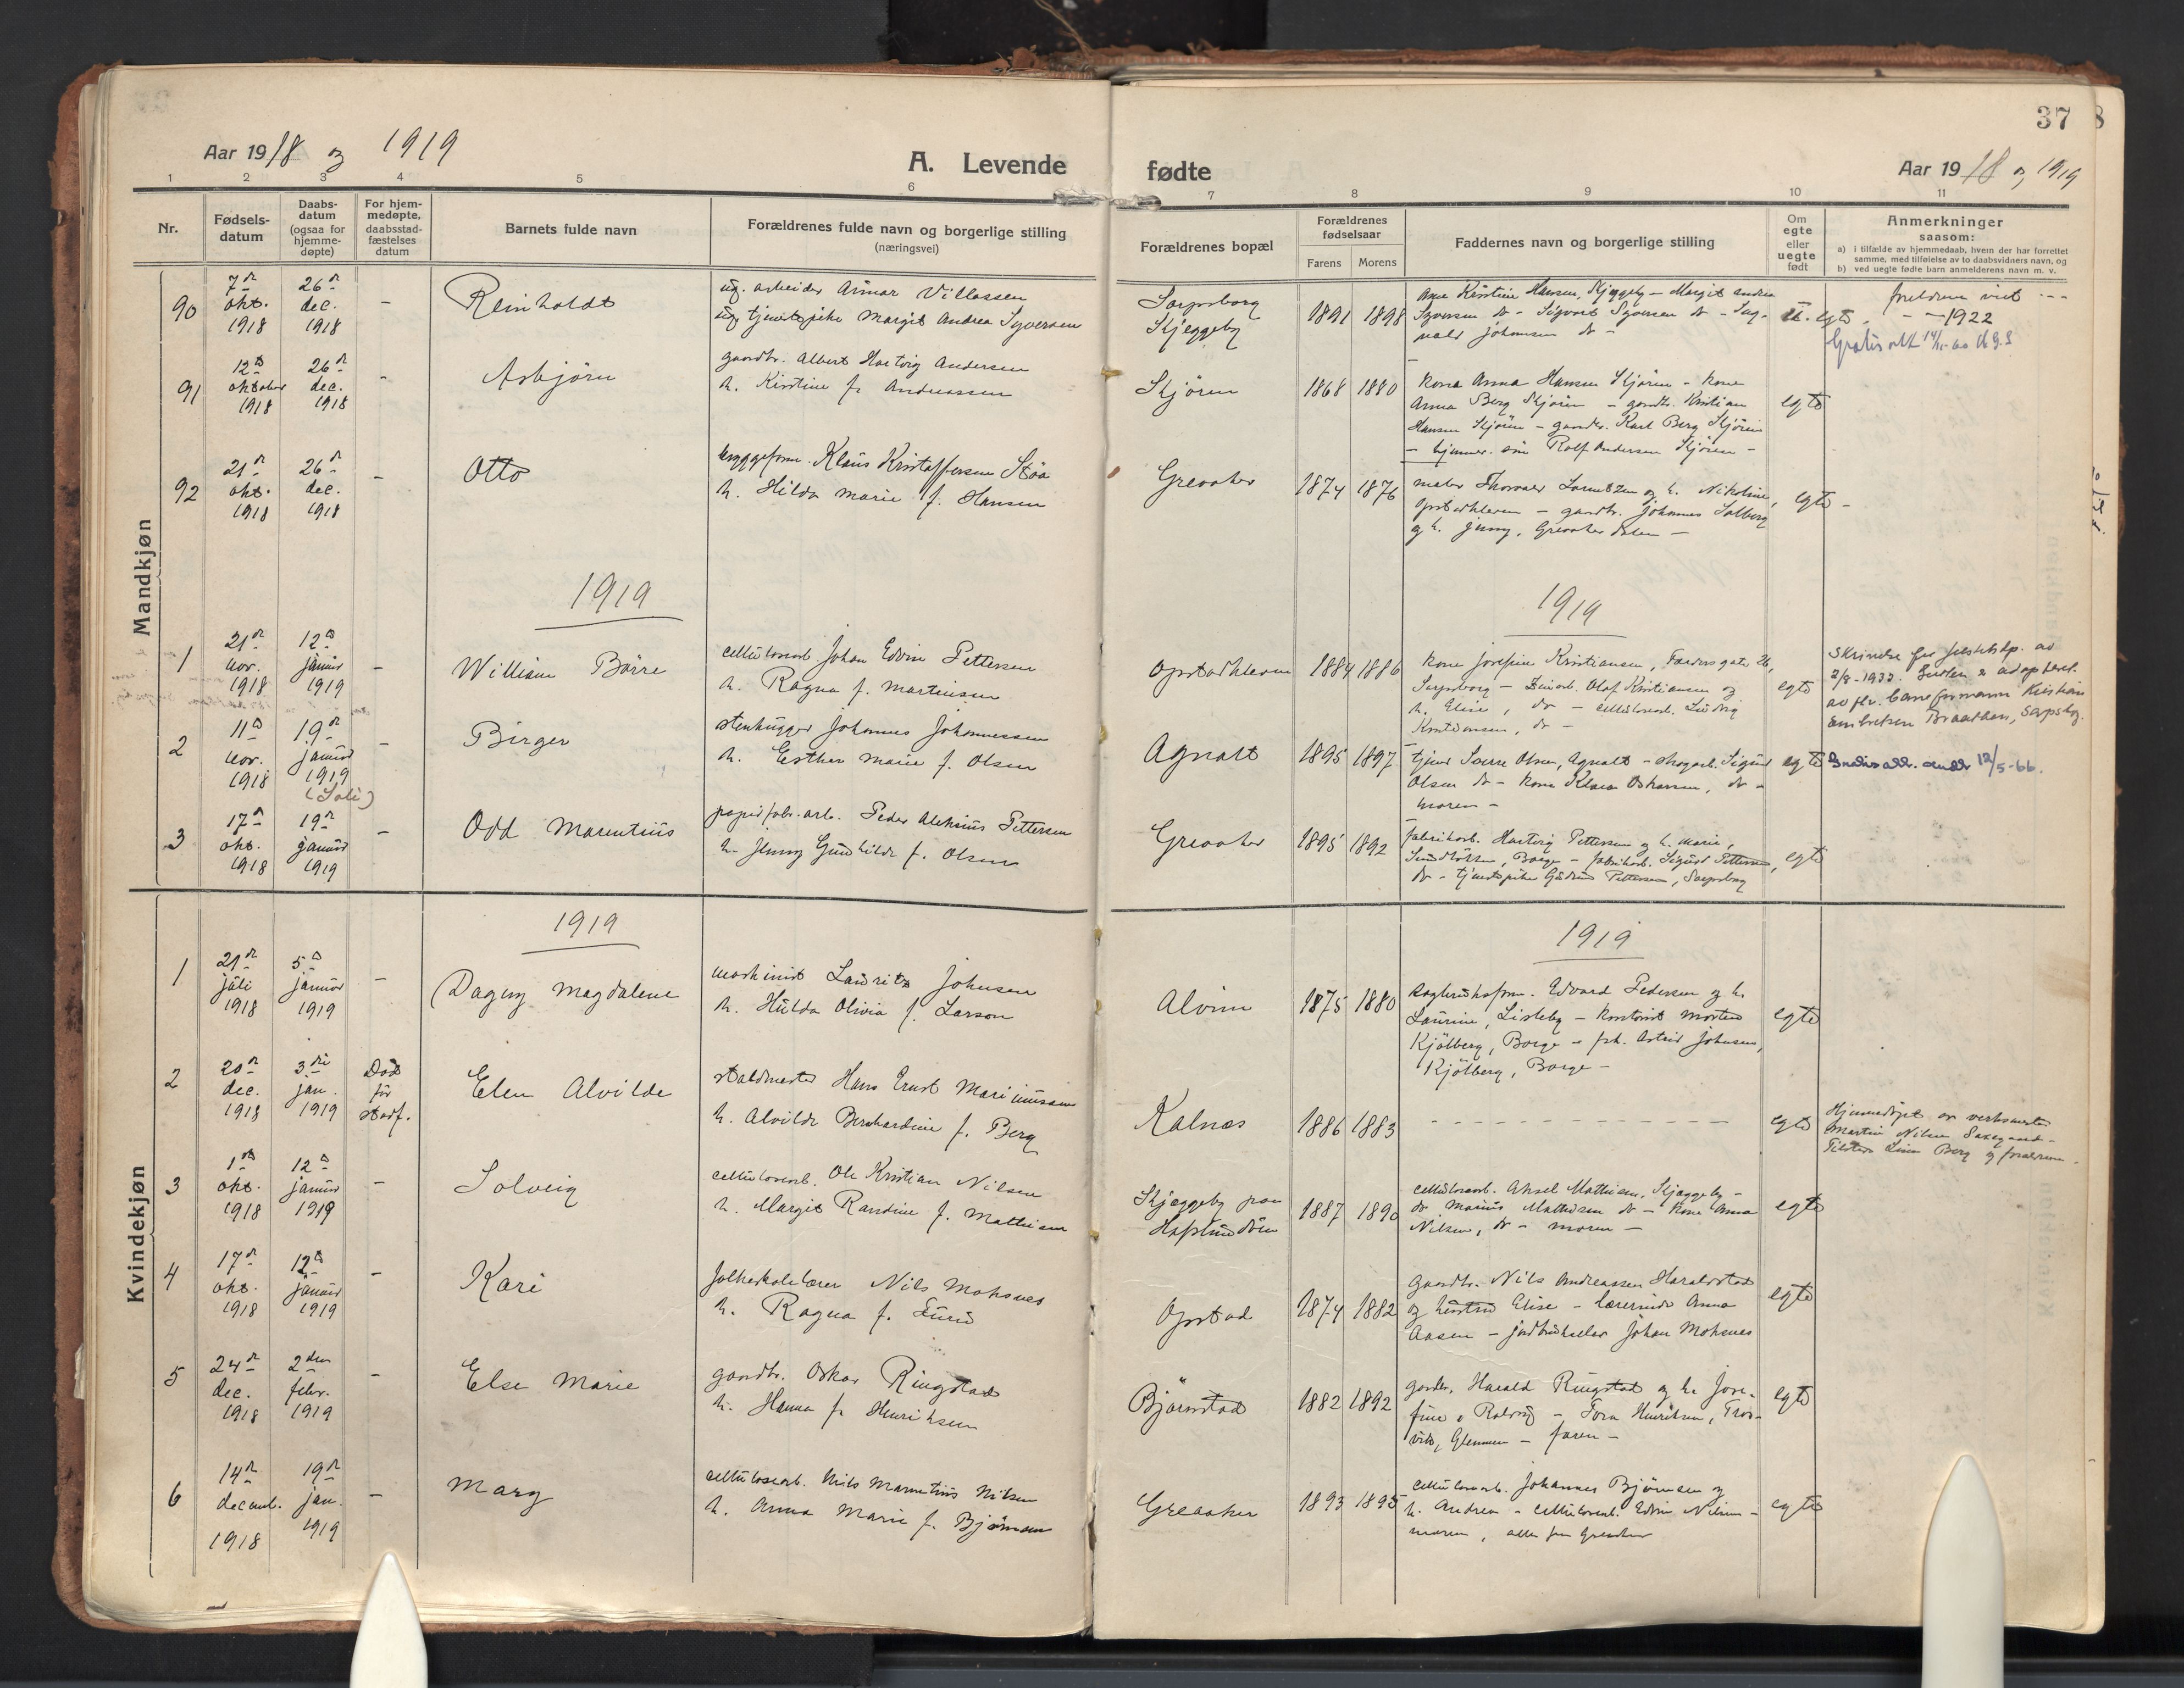 37
8
Aar 1918 og 1919
A. Levende
fødte
Aar 1918 og 1919
1 2 3 4 5 6 7 8 9 10 11
Nr.
Fødsels-
datum
Daabs-
datum
(ogsaa for
hjemme-
døpte)
For hjem-
medøpte,
daabsstad-
fæstelses
datum
Barnets fulde navn
Forældrenes fulde navn og borgerlige stilling
(næringsvei)
Forældrenes bopæl
Forældrenes
fødselsaar
Farens
Morens
Faddernes navn og borgerlige stilling
Om
egte
eller
uegte
født
Anmerkninger
saasom:
a) i tilfælde av hjemmedaab, hvem der har forrettet
samme, med tilføielse av to daabsvidners navn, og
b) ved uegte fødte barn anmelderens navn m. v.
Mandkjøn
90
7de
okt.
1918
26de
dec.
1918
-
Reinholdt
ug. arbeider Villassen
ug. tjenestepike Margit Andrea Syversen
Sarpsborg
Skjeggeby
1891 1898
Ane Kirstine Hansen, Skjeggeby - Margit Andrea
Syversen do - Sigvart Syversen do -
Johansen do -
u. egte
1922
91
12te
oktober
1918
26de
dec.
1918
-
Asbjörn
gaardbr. Albert Hartvig Andersen
h. Kirstine f. Andreassen
Skjören
1868 1880
kone Anna Hansen Skjören - kone
Anna Berg Skjören - gaardbr. Kristian
Hansen Skjören - gaardbr. Karl Berg Skjören
- Rolf Andersen Skjören -
egte
92
21de
okt.
1918
26de
dec.
1918
-
Otto
Klaus Kristoffersen Stöa
h. Hilda Marie f. Hansen
Greaaker
1874 1876
maler og h. Nikoline,
Opstadkleven - gaardbr. Johannes Solberg
og h. Jenny, Greaakerdalen -
egte -
1919
1919
1
21de
nov.
1918
12te
januar
1919
-
William Börre
cellulosearb. Johan Edvin Pettersen
h. Ragna f. Martinsen
Opstadkleven
1884 1886
kone Josefine Kristiansen,
Sarpsborg - Olaf Kristiansen og
h. Elise, do - cellulosearb. Ludvig
Kristiansen, do -
egte
Skrivelse fra av
2/8-1933. er adoptert
av Kristian
Embretsen Braathen, Sarpsbg.
2
11te
nov.
1918
19de
januar
1919
-
Birger
stenhugger Johannes Johannessen
h. Esther Marie f. Olsen
Agnalt
1895 1897
Sverre Olsen, Agnalt - Sigurd
Olsen do - kone Klara Oskarsen, do -
moren -
egte
12/5-66.
3
17de
okt.
1918
(Soli)
19de
januar
1919
-
Odd Marentius
papirfabr. arb. Peder Aleksius Pettersen
h. Jenny Gunhilde f. Olsen
Greaaker
1895 1892
fabrikarb. Hartvig Pettersen og h. Marie,
Borge - fabrikarb. Sigurd Pettersen,
do - tjenestepike Gudrun Pettersen, Sarpsborg
egte
Kvindekjøn
1919
1919
1
21de
juli
1918
5te
januar
1919
-
Dagny Magdalene
maskinist Lauritz Johnsen
h. Hulda Olivia f. Larson
Alvim
1875 1880
Edvard Pedersen og h.
Laurine, Lisleby - kontorist Morten
Kjölberg, Borge - frk. Astrid Johnsen,
Kjölberg, Borge -
egte
2
20de
dec.
1918
3die
jan.
1919
Död
för
stadf.
Elen Alvilde
staldmester Hans Ernst Marinussen
h. Alvilde Bernhardine f. Berg
Kalnæs
1886 1883
egte
Hjemmedöpt av
Martin Nilsen -
Berg og forældrene.
3
1ste
okt.
1918
12te
januar
1919
-
Solveig
cellulosearb. Ole Kristian Nilsen
h. Margit Randine f. Mathisen
Skjeggeby paa
Hafslundsöen
1887 1890
cellulosearb. Aksel Mathisen, Skjeggeby -
do Marius Mathisen do - kone Anna
Nilsen, do - moren -
egte
4
17de
okt.
1918
12te
januar
1919
-
Kari
folkeskolelærer Nils Moksnes
h. Ragna f. Lund
Opstad
1874 1882
gaardbr. Nils Andreassen Haraldstad
og hustru Elise - lærerinde Anna
Aasen - Johan Moksnes
egte
5
24de
dec.
1918
2den
febr.
1919
-
Else Marie
gaardbr. Oskar Ringstad
h. Hanna f. Henriksen
Björnstad
1882 1892
gaardbr. Harald Ringstad og h. Jose-
fine, Rolvsöy - Tora Henriksen, Tros-
vik, Glemmen - faren -
egte
6
14de
decemb.
1918
19de
jan.
1919
-
Mary
cellulosearb. Nils Marentius Nilsen
h. Anna Marie f. Björnsen
Greaaker
1893 1895
cellulosearb. Johannes Björnsen og
h. Andrea - cellulosearb. Edvin Nilsen -
moren, alle fra Greaaker
egte